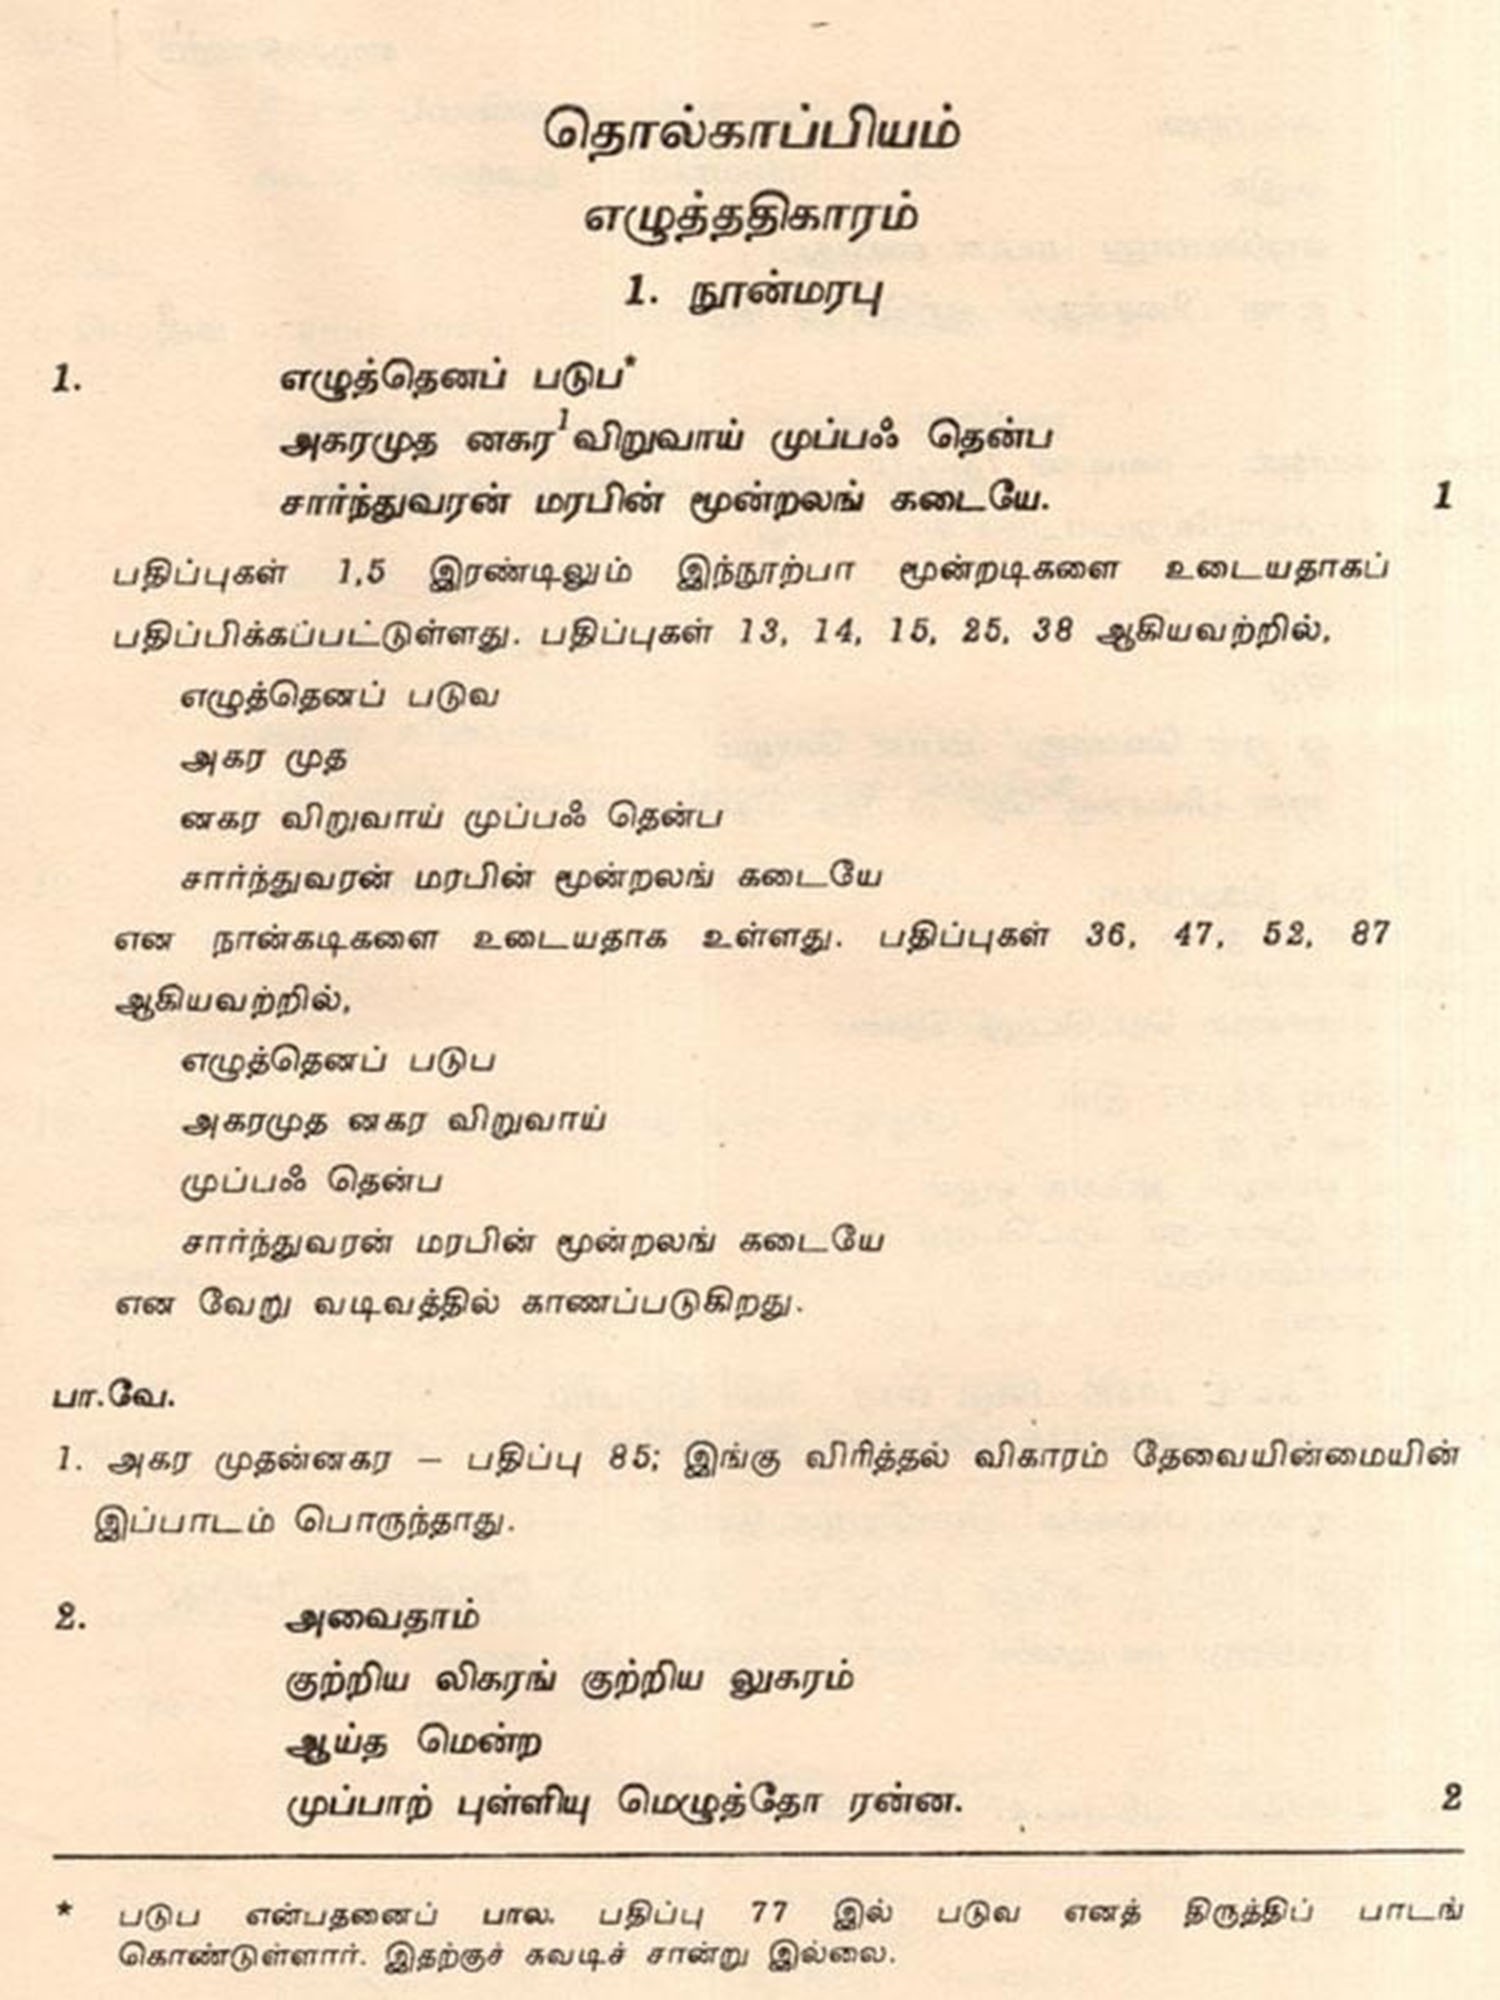 தொல்காப்பியம்
எழுத்ததிகாரம்
1. நூன்மரபு
1. எழுத்தெனப் படுப*
அகரமுத னகர¹விறுவாய் முப்பஃ தென்ப
சார்ந்துவரன் மரபின் மூன்றலங் கடையே. 1
பதிப்புகள் 1,5 இரண்டிலும் இந்நூற்பா மூன்றடிகளை உடையதாகப்
பதிப்பிக்கப்பட்டுள்ளது. பதிப்புகள் 13, 14, 15, 25, 38 ஆகியவற்றில்,
எழுத்தெனப் படுவ
அகர முத
னகர விறுவாய் முப்பஃ தென்ப
சார்ந்துவரன் மரபின் மூன்றலங் கடையே
என நான்கடிகளை உடையதாக உள்ளது. பதிப்புகள் 36, 47, 52, 87
ஆகியவற்றில்,
எழுத்தெனப் படுப
அகரமுத னகர விறுவாய்
முப்பஃ தென்ப
சார்ந்துவரன் மரபின் மூன்றலங் கடையே
என வேறு வடிவத்தில் காணப்படுகிறது.
பா.வே.
1. அகர முதன்னகர – பதிப்பு 85; இங்கு விரித்தல் விகாரம் தேவையின்மையின்
இப்பாடம் பொருந்தாது.
2. அவைதாம்
குற்றிய லிகரங் குற்றிய லுகரம்
ஆய்த மென்ற
முப்பாற் புள்ளியு மெழுத்தோ ரன்ன. 2
* படுப என்பதனைப் பால. பதிப்பு 77 இல் படுவ எனத் திருத்திப் பாடங்
கொண்டுள்ளார். இதற்குச் சுவடிச் சான்று இல்லை.